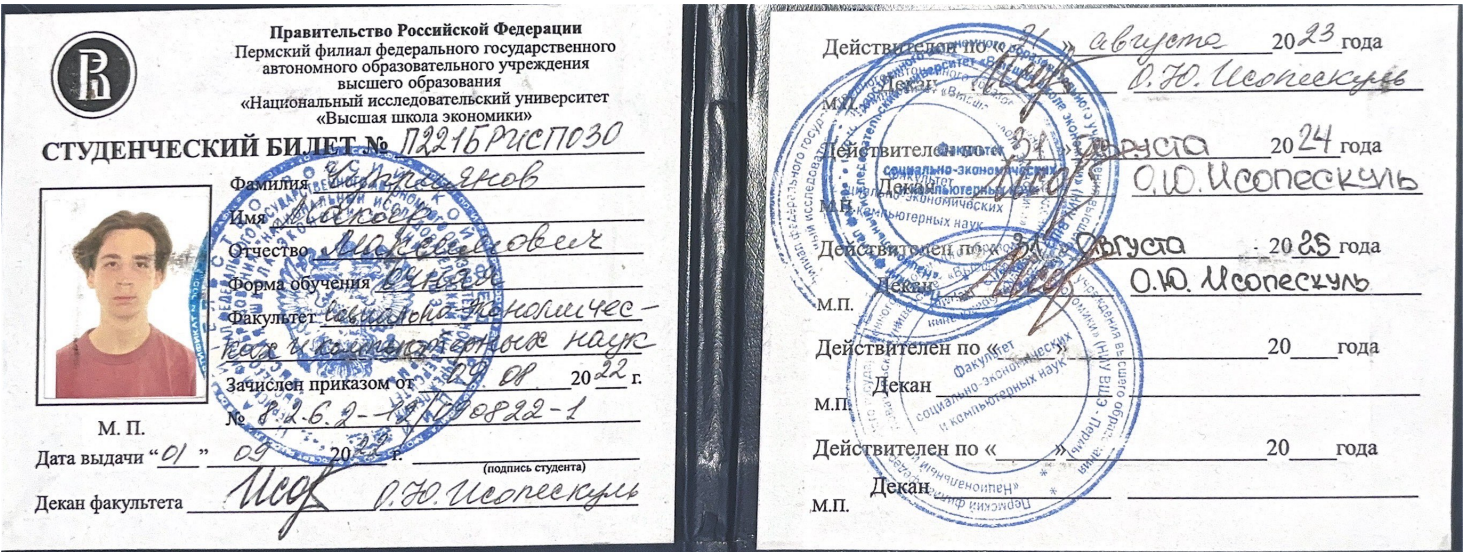 Правительство Российской Федерации
Пермский филиал федерального государственного
автономного образовательного учреждения
высшего образования
«Национальный исследовательский университет
«Высшая школа экономики»
СТУДЕНЧЕСКИЙ БИЛЕТ № П221БРИСПО30
Фамилия
Имя Максим
Отчество Максимович
Форма обучения очная
Факультет Социально-экономичес-
ких и компьютерных наук
Зачислен приказом от 09 08 2022 г.
№ 8.2.6.2-19/090822-1
М. П.
Дата выдачи “01” 09 2022 г.
(подпись студента)
Декан факультета О.Ю. Исопескуль
Действителен по «31» августа 2023 года
Декан О.Ю. Исопескуль
М.П.
Действителен по «31» Августа 2024 года
Декан О.Ю. Исопескуль
М.П.
Действителен по «31» Августа 2025 года
Декан О.Ю. Исопескуль
М.П.
Действителен по «____» 20___ года
Декан
М.П.
Действителен по «____» 20___ года
Декан
М.П.
Факультет
социально-экономических
и компьютерных наук